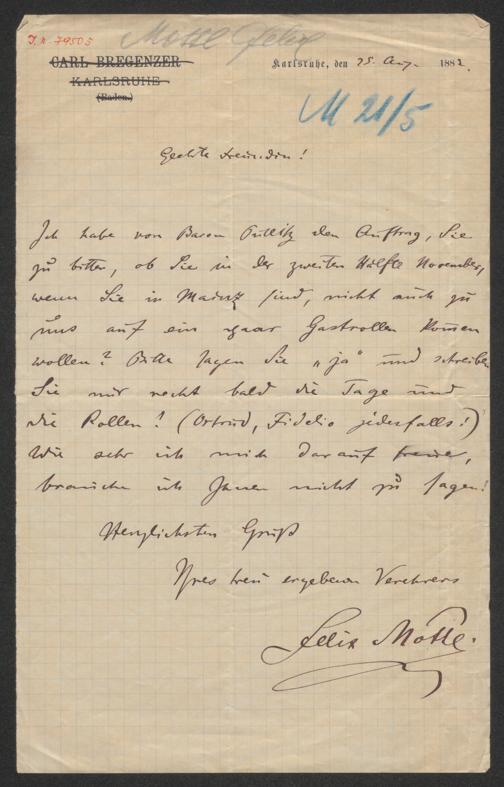 I.N. 79505
Mottl Felix
CARL BREGENZER
KARLSRUHE
(Baden.)
Karlsruhe, den 25. Aug. 1882.
M 21/5
Geehrte Freundin!
Ich habe von Baron Putlitz den Auftrag, Sie
zu bitten, ob Sie in der zweiten Hälfte November,
wenn Sie in Mainz sind, nicht auch zu
uns auf ein paar Gastrollen kommen
wollen? Bitte sagen Sie „ja" und schreiben
Sie mir recht bald die Tage und
die Rollen! (Ortrud, Fidelio jedenfalls!)
Wie sehr ich mich darauf freue,
brauche ich Ihnen nicht zu sagen!
Herzlichsten Gruß
Ihres treu ergebenen Verehrers
Felix Mottl.